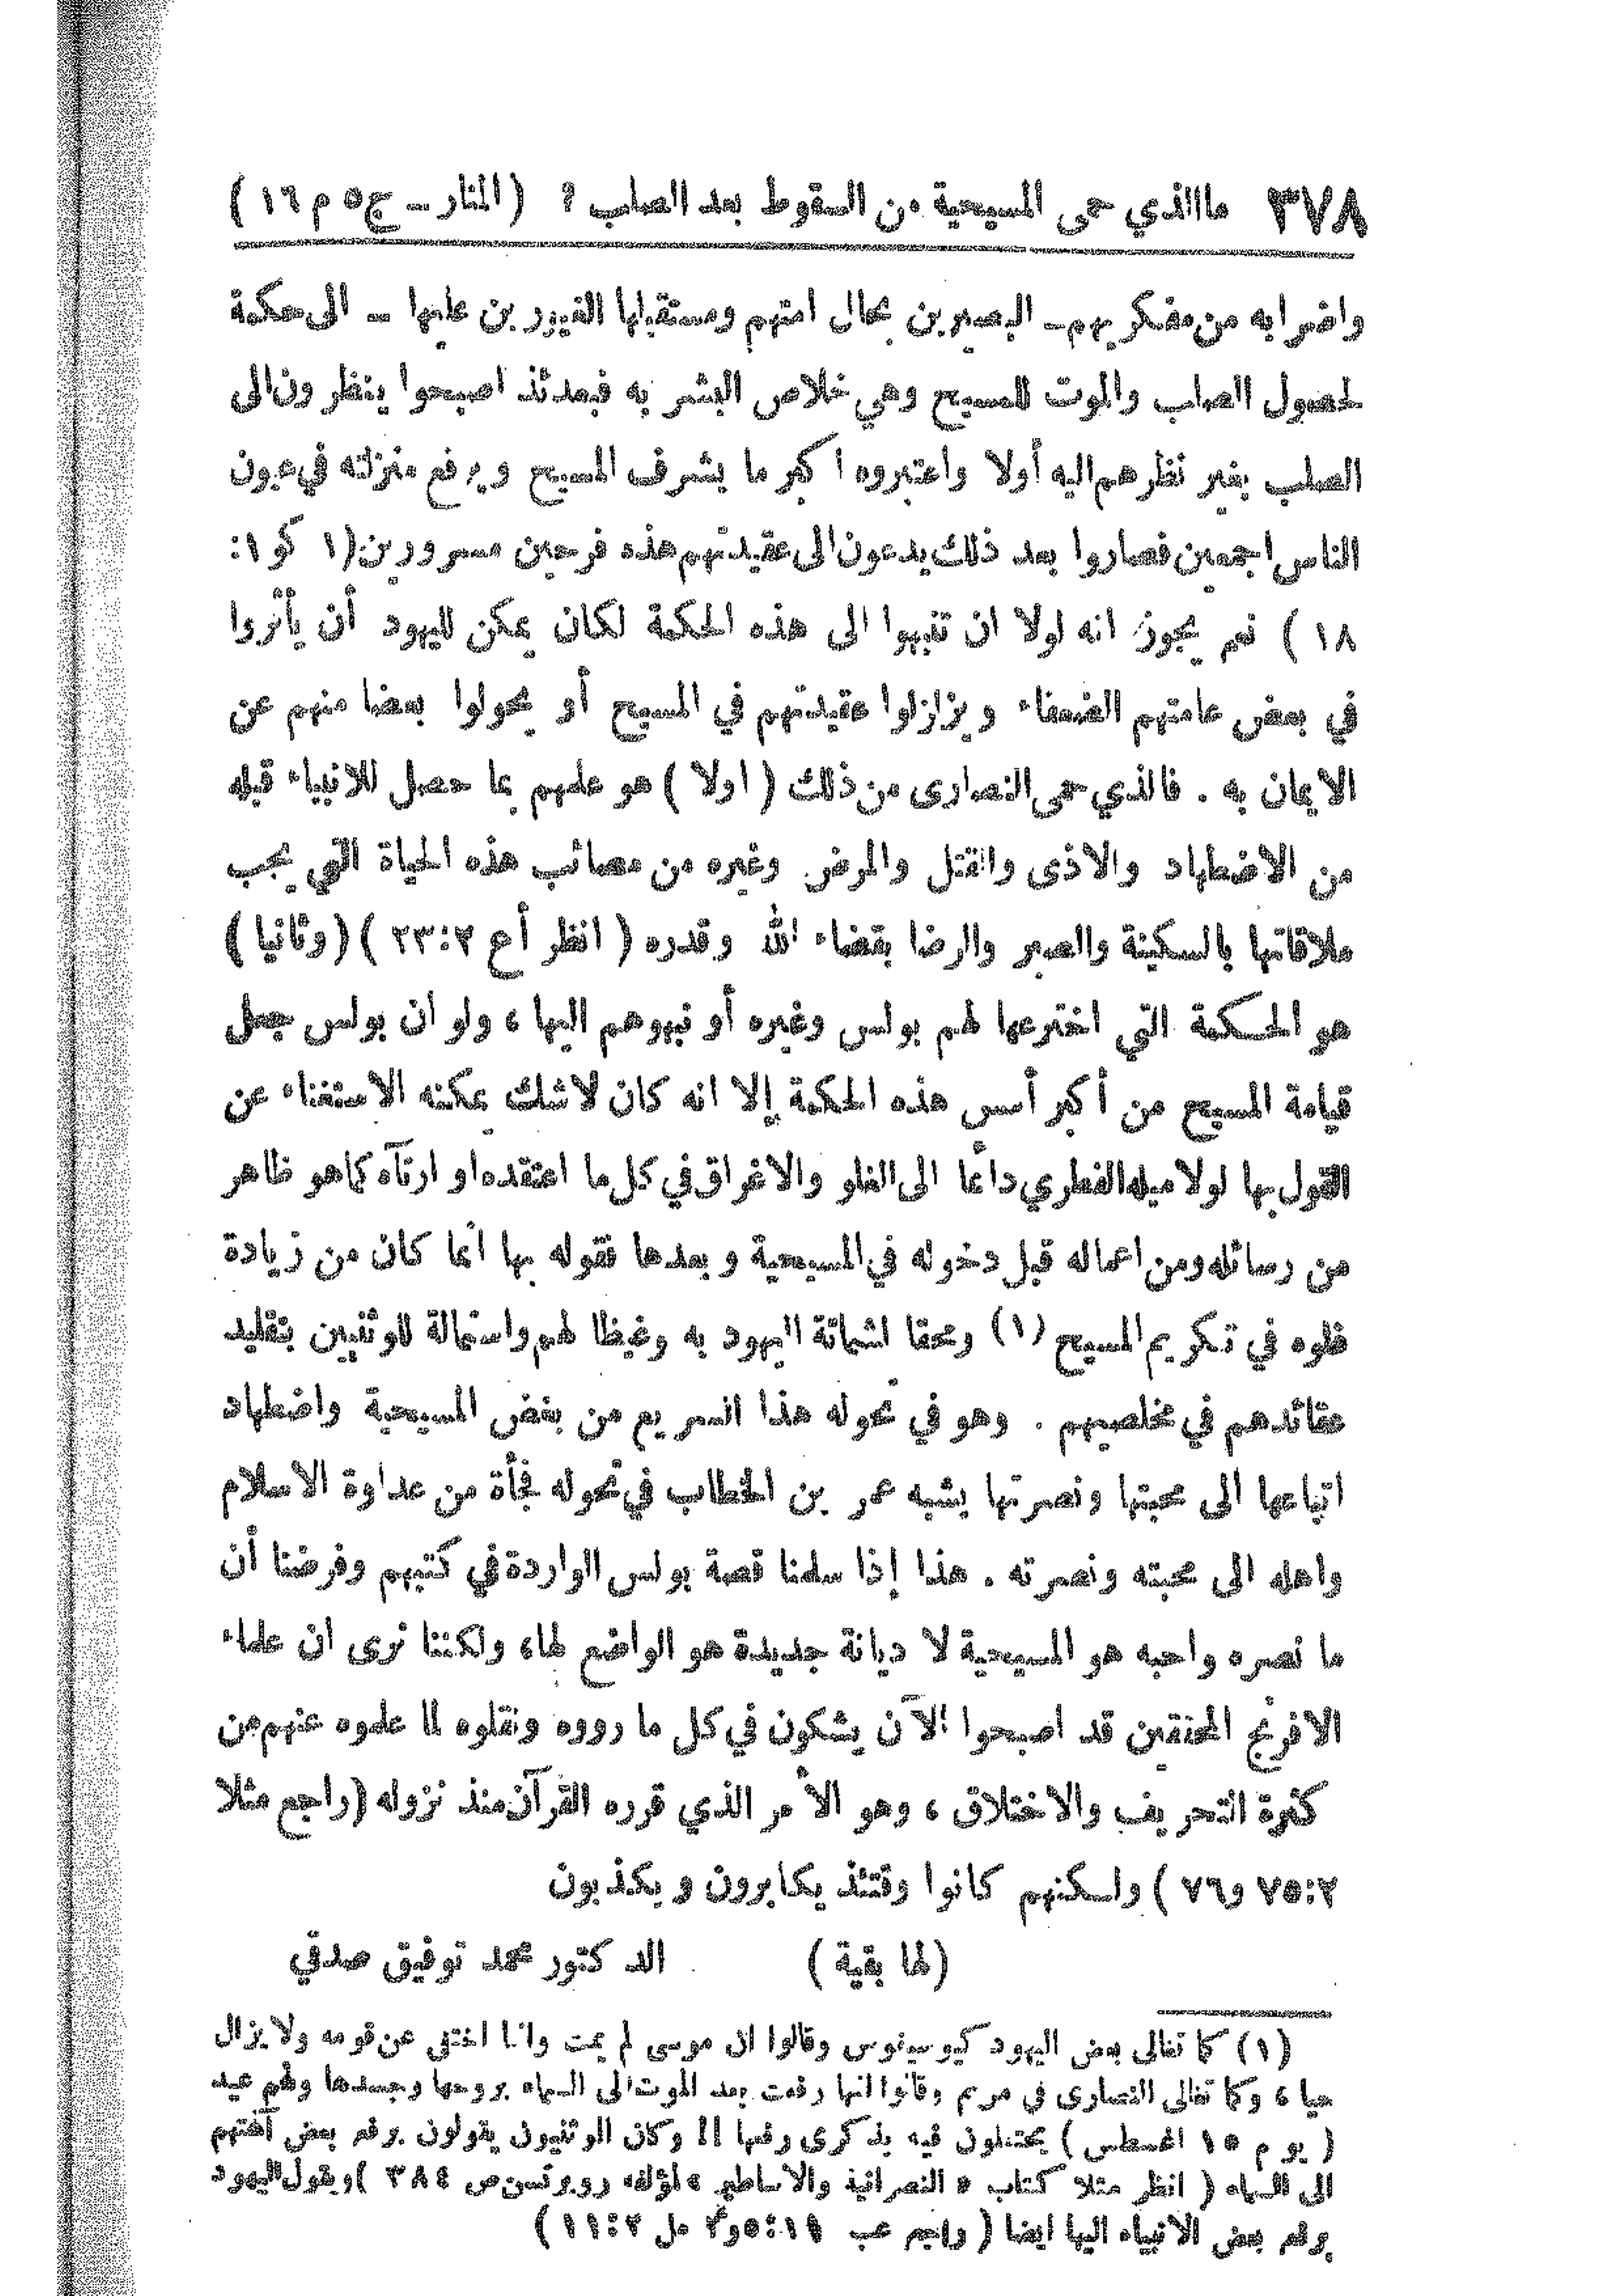 ٣٧٨ ما الذي حمى المسيحية من السقوط بعد الصلب ؟ ( المنار ــ ج٥ م ١٦ )
واضرابه من مفكريهم ــ البصيرين بحال امتهم ومستقبلها الغيورين عليها ــ الى حكمة
لحصول الصلب والموت للمسيح وهي خلاص البشر به فبعدئذ اصبحوا ينظرون الى
الصلب بغير نظرهم اليه أولا واعتبروه اكبر ما يشرف المسيح ويرفع منزلته في عيون
الناس اجمعين فصاروا بعد ذلك يدعون الى عقيدتهم هذه فرحين مسرورين (١ كو ١ :
١٨ ) نعم يجوز انه لولا ان تنبهوا الى هذه الحكمة لكان يمكن لليهود أن يأثروا
في بعض عامتهم الضعفاء ويزلزلوا عقيدتهم في المسيح أو يحولوا بعضا منهم عن
الايمان به . فالذي حمى النصارى من ذلك ( اولا ) هو علمهم بما حصل للانبياء قبله
من الاضطهاد والاذى والقتل والمرض وغيره من مصائب هذه الحياة التي يجب
ملاقاتها بالسكينة والصبر والرضا بقضاء الله وقدره ( انظر أع ٢ : ٢٣ ) (وثانيا )
هو الحكمة التي اخترعها لهم بولس وغيره أو نبهوهم اليها ، ولو ان بولس جعل
قيامة المسيح من أكبر أسس هذه الحكمة إلا انه كان لاشك يمكنه الاستغناء عن
القول بها لولا ميله الفطري دائما الى الغلو والاغراق في كل ما اعتقده او ارتآه كما هو ظاهر
من رسائله ومن اعماله قبل دخوله في المسيحية وبعدها فقوله بها انما كان من زيادة
غلوه في تكريم المسيح (١) ومحقا لشماتة اليهود به وغيظا لهم واستمالة للوثنيين بتقليد
عقائدهم في مخلصيهم . وهو في تحوله هذا السريع من بغض المسيحية واضطهاد
اتباعها الى محبتها ونصرتها يشبه عمر بن الخطاب في تحوله فجأة من عداوة الاسلام
واهله الى محبته ونصرته . هذا إذا سلمنا قصة بولس الواردة في كتبهم وفرضنا أن
ما نصره واحبه هو المسيحية لا ديانة جديدة هو الواضع لها، ولكننا نرى ان علماء
الافرنج المحققين قد اصبحوا الآن يشكون في كل ما رووه ونقلوه لما علموه عنهم من
كثرة التحريف والاختلاق ، وهو الأمر الذي قرره القرآن منذ نزوله (راجع مثلا
٢ : ٧٥ و٧٦ ) ولكنهم كانوا وقتئذ يكابرون ويكذبون
(لها بقية ) الدكتور محمد توفيق صدقي
(١) كما تغالى بعض اليهود كيوسيفوس وقالوا ان موسى لم يمت وانما اختفى عن قومه ولا يزال
حيا ، وكما تغالى النصارى في مريم وقالوا انها رفعت بعد الموت الى السماء بروحها وجسدها ولهم عيد
( يوم ١٥ اغسطس ) يحتفلون فيه بذكرى رفعها !! وكان الوثنيون يقولون برفع بعض آلهتهم
الى السماء ( انظر مثلا كتاب « النصرانية والاساطير » لمؤلفه روبرتسن ص ٣٨٤ ) ويقول اليهود
برفع بعض الانبياء اليها ايضا ( راجع عب ١١ : ٥ و٢ مل ٢ : ١١ )